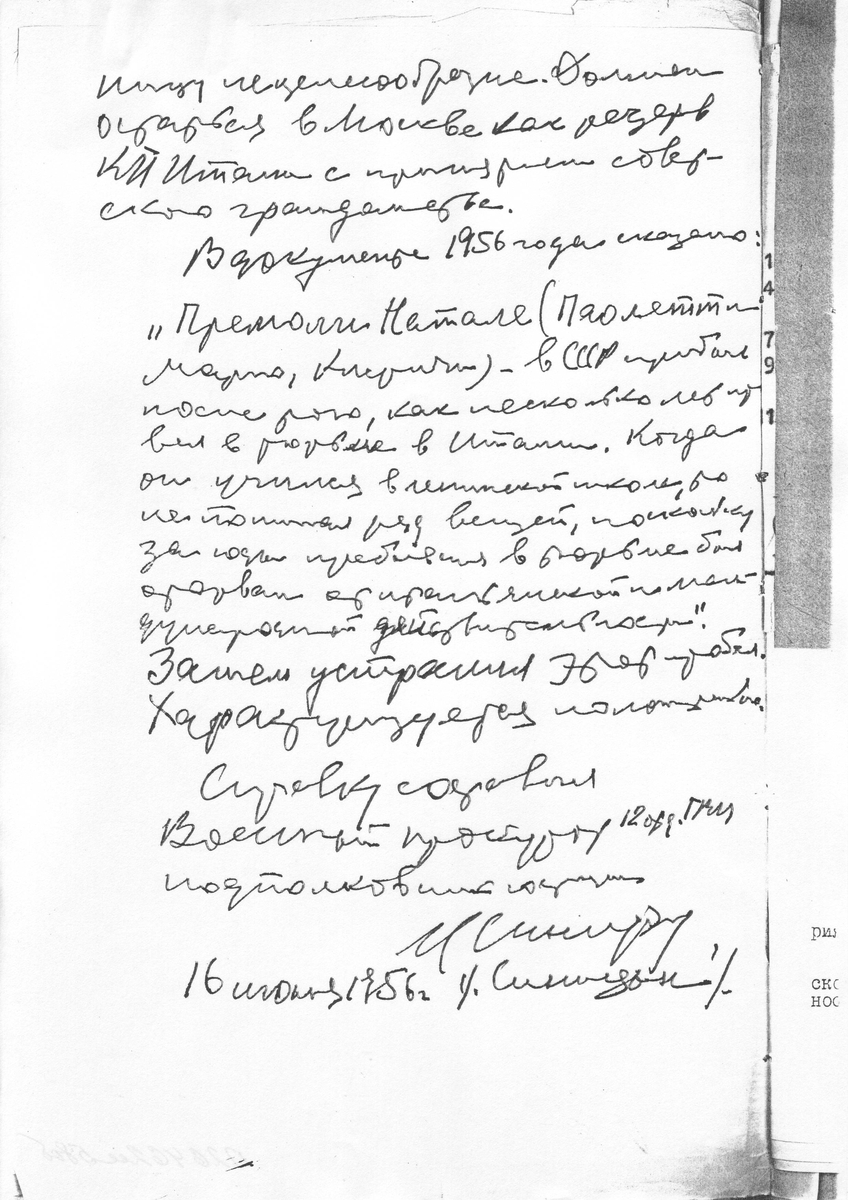 нецелесообразно. Должен
остаться в Москве как резерв
КП Италии с принятием совет-
ского гражданства.
В документе 1956 года сказано:
„Премоли Натале (Паолетти
Марио, ) – в СССР прибыл
после того, как несколько лет
в тюрьме в Италии. Когда
он учился в ленинской школе, то
не понимал ряд вещей, поскольку
за годы пребывания в тюрьме был
оторван от итальянской и меж-
дународной действительности".
Затем устранил этот пробел.
Характеризуется положительно.
Справку составил
Военный прокурор 12 отд. ГВП
подполковник юстиции
16 июля 1956 г. /. Синицын /.
1
4
7
9
1
ско
нос